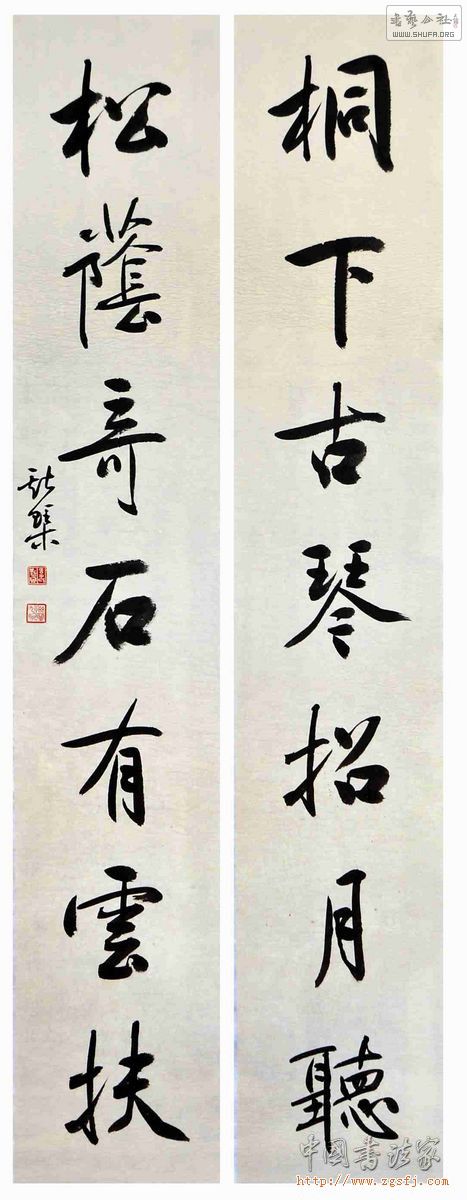 桐下古琴招月聽
松蔭奇石有雲扶
书艺公社
WWW.SHUFA.ORG
中國書法家
http://www.zgsfj.com